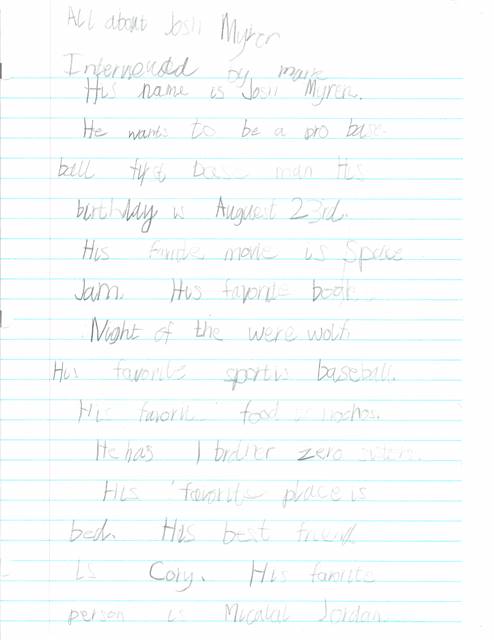 All about Josh Myren
Interveuwd by mark
His name is Josh Myren.
He wants to be a pro base-
ball first base man His
birthday is Auguest 23rd.
His favrite movie is Space
Jam. His favorite book
Night of the were wolf.
His favorite sport is baseball.
His favorite food is nachos.
He has 1 brother zero sisters.
His favorite place is
bed. His best friend
is Cory. His favorite
person is Micalal Jordan.